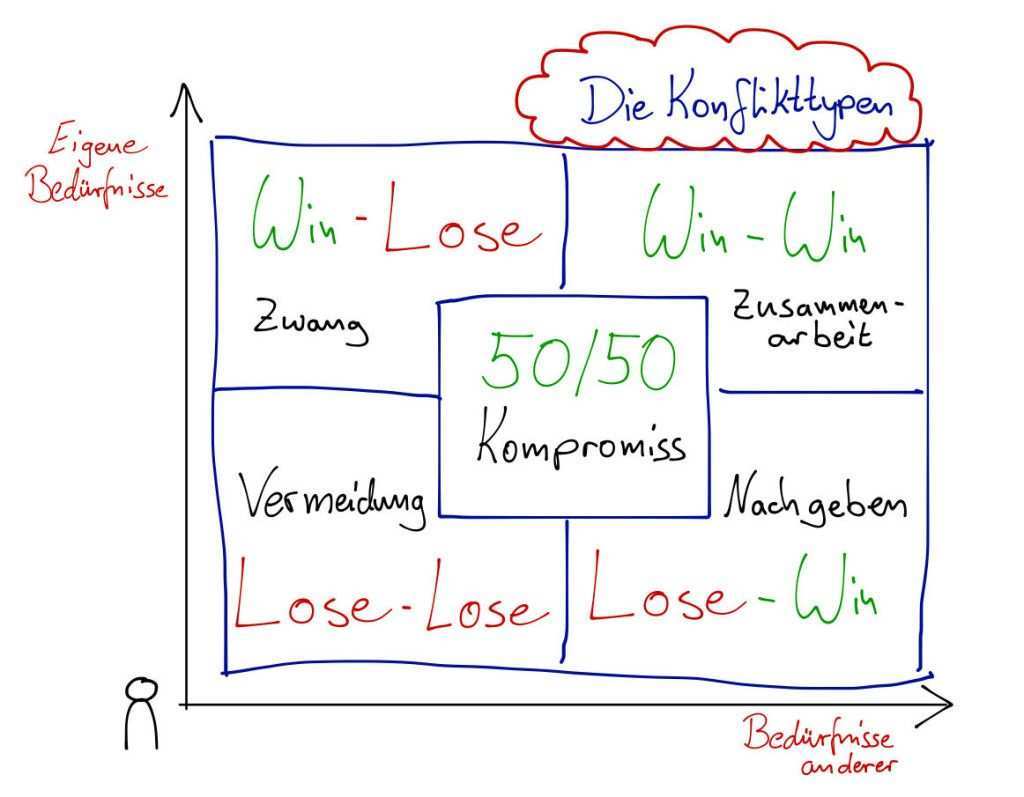 Die Konflikttypen
Eigene
Bedürfnisse
Win - Lose
Zwang
Win - Win
Zusammen-
arbeit
50/50
Kompromiss
Vermeidung
Lose - Lose
Nachgeben
Lose - Win
Bedürfnisse
anderer